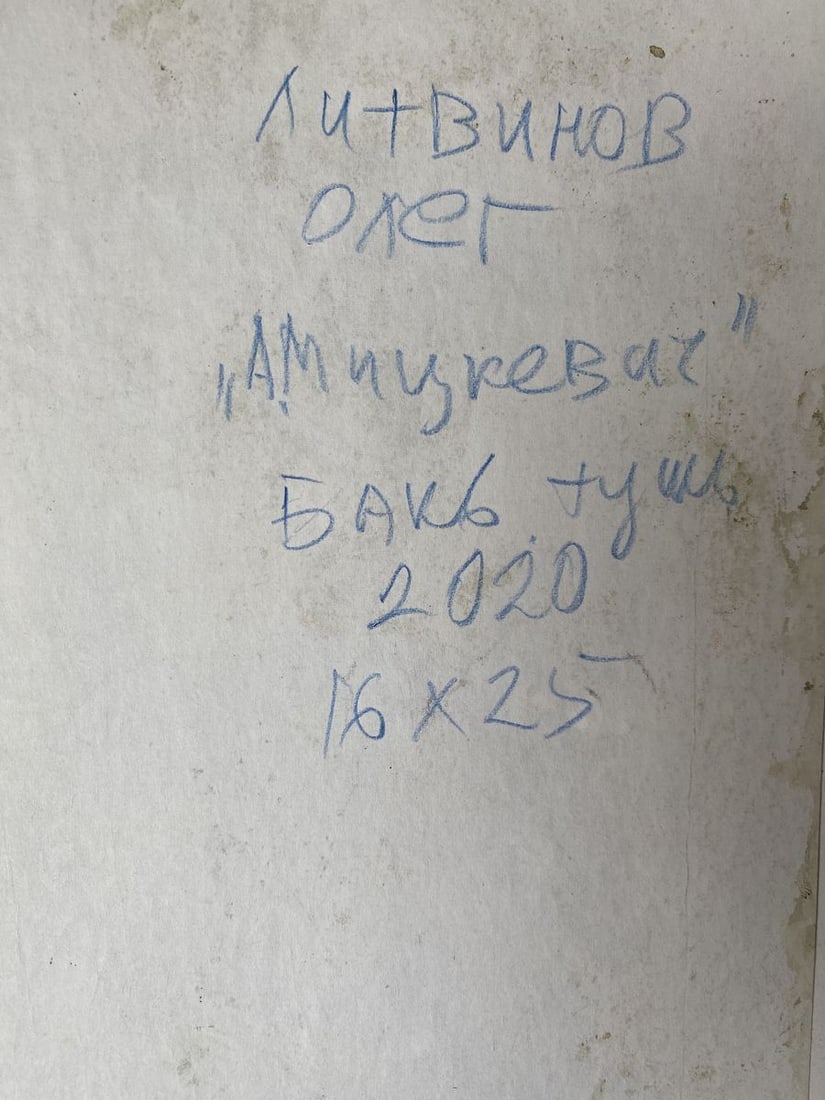 Литвинов
Олег
„А.Мицкевич"
БАКЬ. тушь
2020
16 x 25